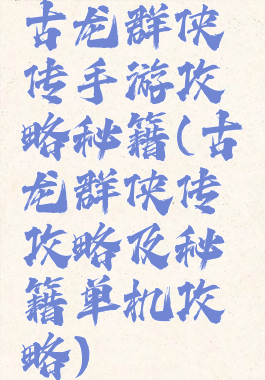 古龙群侠
传手游攻
略秘籍(古
龙群侠传
攻略及秘
籍单机攻
略)